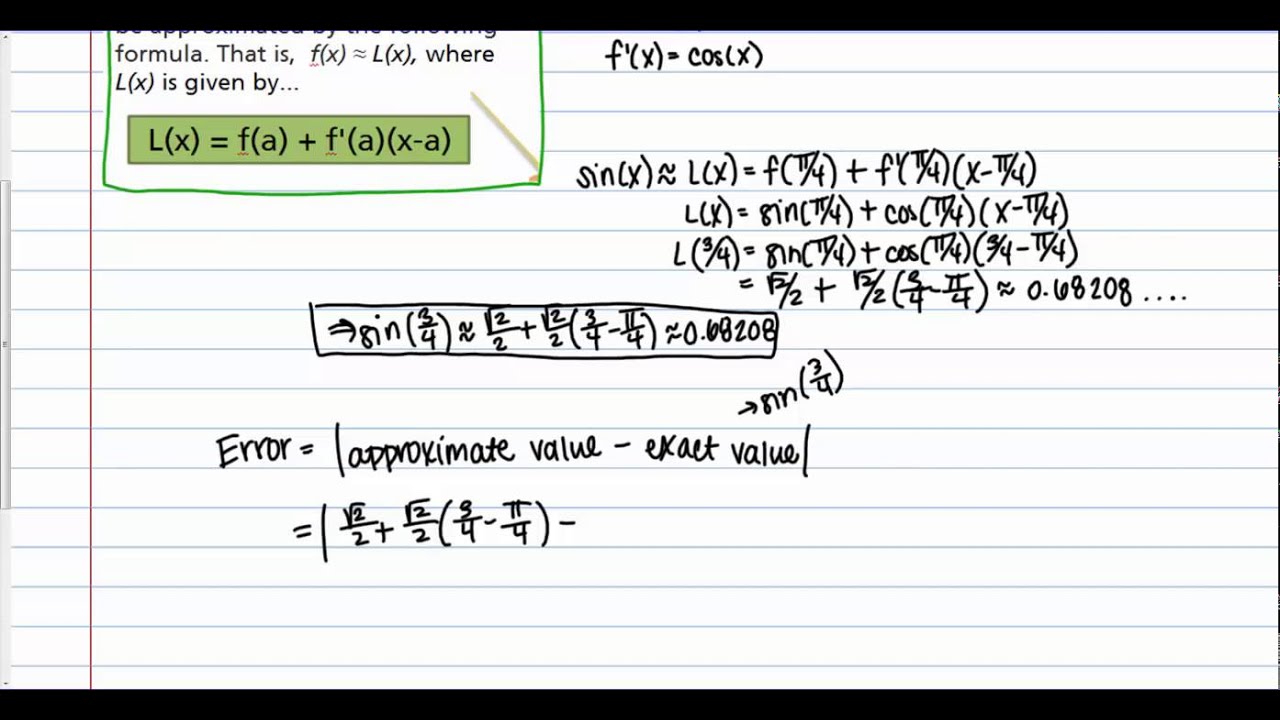 be approximated by the following
formula. That is, f(x) ≈ L(x), where
L(x) is given by...
L(x) = f(a) + f'(a)(x-a)
f'(x) = cos(x)
sin(x) ≈ L(x) = f(π/4) + f'(π/4)(x-π/4)
L(x) = sin(π/4) + cos(π/4)(x-π/4)
L(3/4) = sin(π/4) + cos(π/4)(3/4-π/4)
= √2/2 + √2/2(3/4-π/4) ≈ 0.68208....
⇒ sin(3/4) ≈ √2/2 + √2/2(3/4-π/4) ≈ 0.68208
→ sin(3/4)
Error = |approximate value - exact value|
= |√2/2 + √2/2(3/4-π/4) -